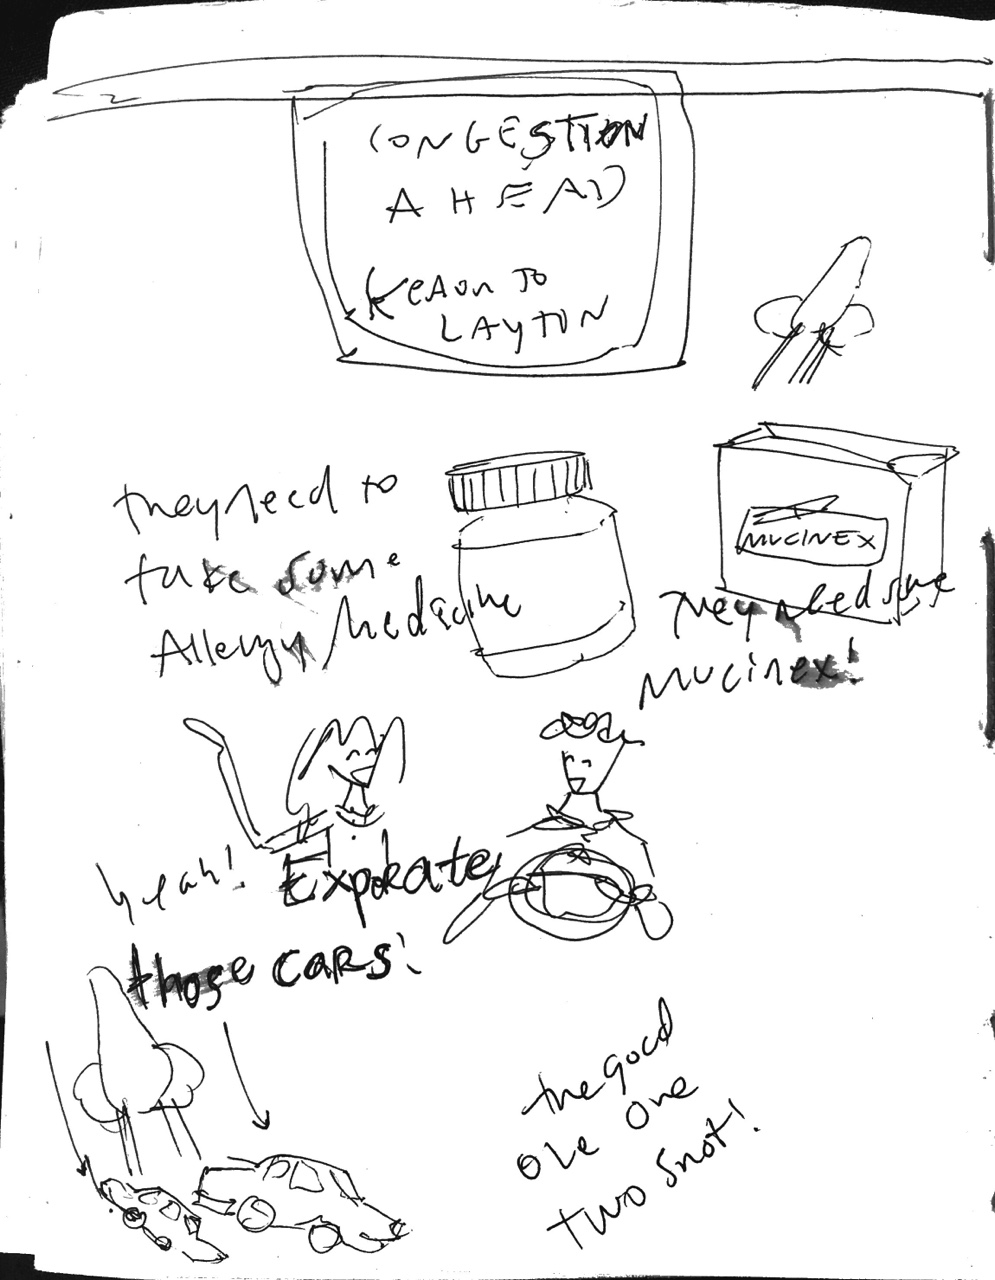 CONGESTION
AHEAD
KEAON TO
LAYTON
they need to
take some
Allergy Medicine
MUCINEX
They need some
Mucinex!
Yeah! Expokate
those cars!
the good
ole one
two snot!